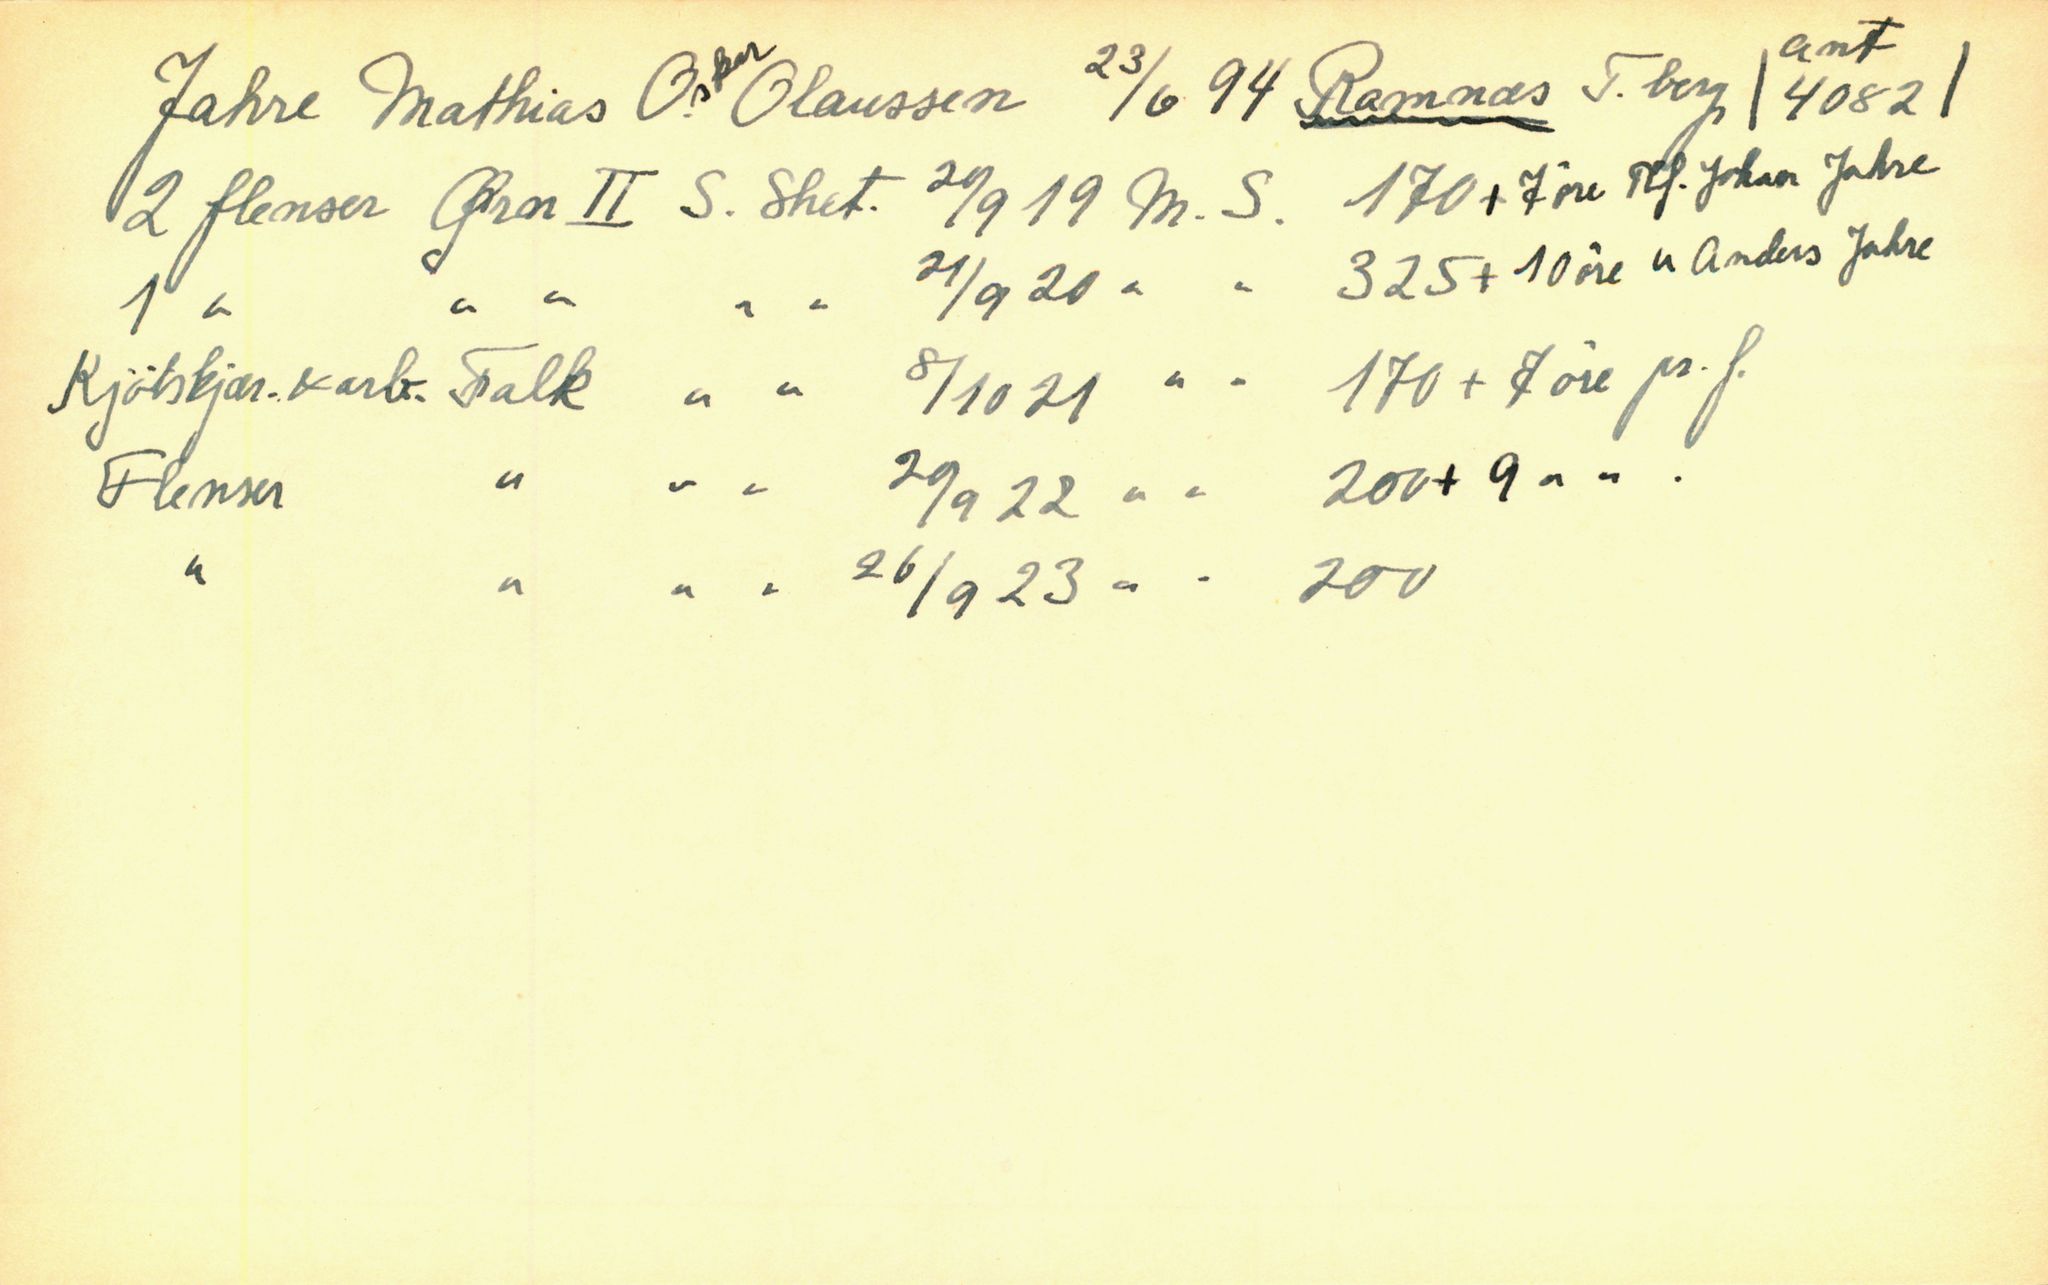 Jahre Mathias Oskar Olaussen 23/6 94 Ramnæs T. berg | ant 4082 |
2 flenser Ørn II S. Shet. 20/9 19 M. S. 170 + 7 öre Tlf. Johan Jahre
1 " " " " " 21/9 20 " " 325 + 10 öre " Anders Jahre
Kjötskjær. & arb. Falk " " 8/10 21 " " 170 + 7 öre pr. f.
Flenser " " " 20/9 22 " " 200 + 9 " " "
" " " " 26/9 23 " " 200